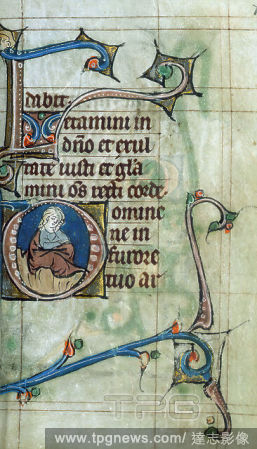 dabit.
Letamini in
dño et exul
tate iusti et gl̃a
mini om̃s recti corde
Domine
ne in
furore
tuo ar
TPG
www.tpgnews.com/ 達志影像